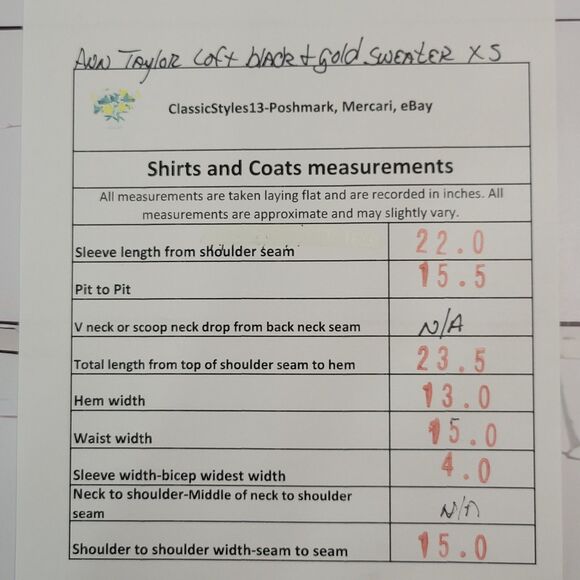 Ann Taylor Loft black + gold sweater XS
ClassicStyles13-Poshmark, Mercari, eBay
Shirts and Coats measurements
All measurements are taken laying flat and are recorded in inches. All
measurements are approximate and may slightly vary.
Sleeve length from shoulder seam 22.0
Pit to Pit 15.5
V neck or scoop neck drop from back neck seam N/A
Total length from top of shoulder seam to hem 23.5
Hem width 13.0
Waist width 15.0
Sleeve width-bicep widest width 4.0
Neck to shoulder-Middle of neck to shoulder
seam N/A
Shoulder to shoulder width-seam to seam 15.0